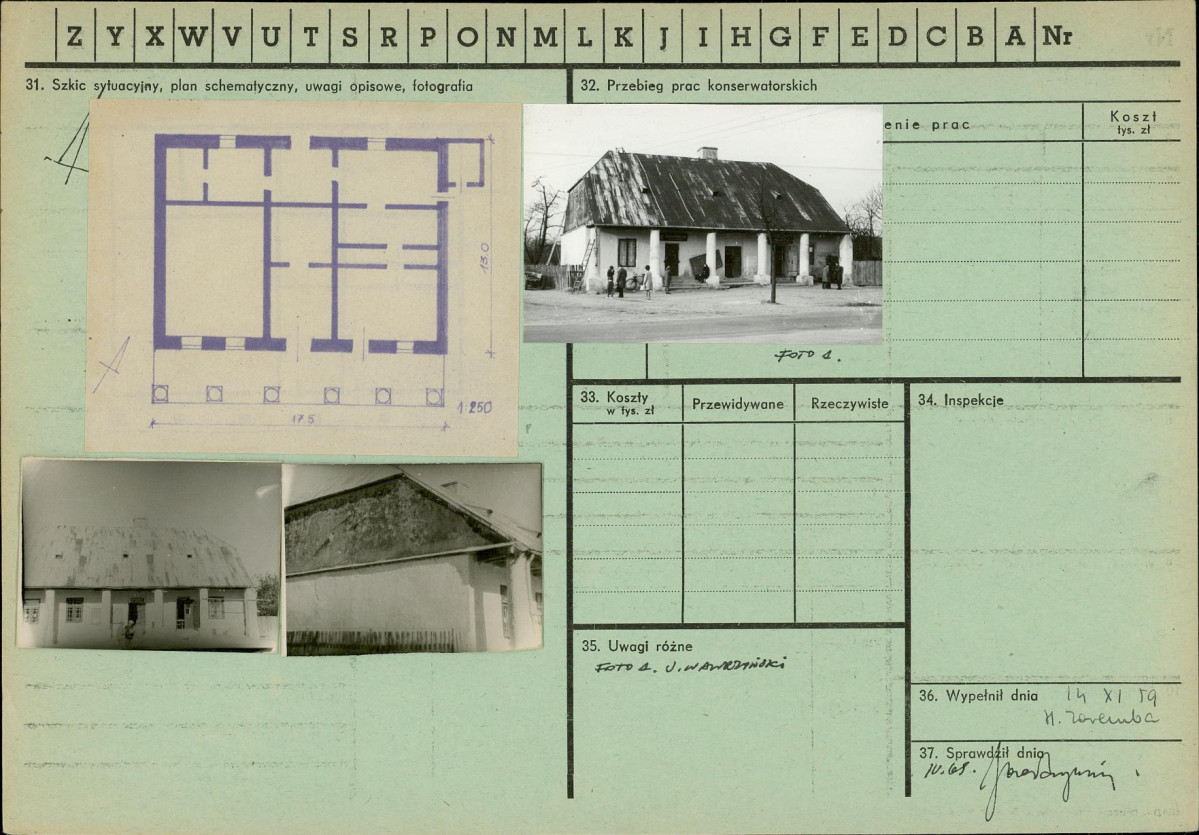 Z Y X W V U T S R P O N M L K J I H G F E D C B A Nr
31. Szkic sytuacyjny, plan schematyczny, uwagi opisowe, fotografia
32. Przebieg prac konserwatorskich
enie prac
Koszt
tys. zł
13.0
17.5
1:250
FOTO 1.
33. Koszty
w tys. zł
Przewidywane
Rzeczywiste
34. Inspekcje
35. Uwagi różne
FOTO 1. J. WAWRZYŃSKI
36. Wypełnił dnia 14 XI 59
H. Zaremba
37. Sprawdził dnia
IV.68.